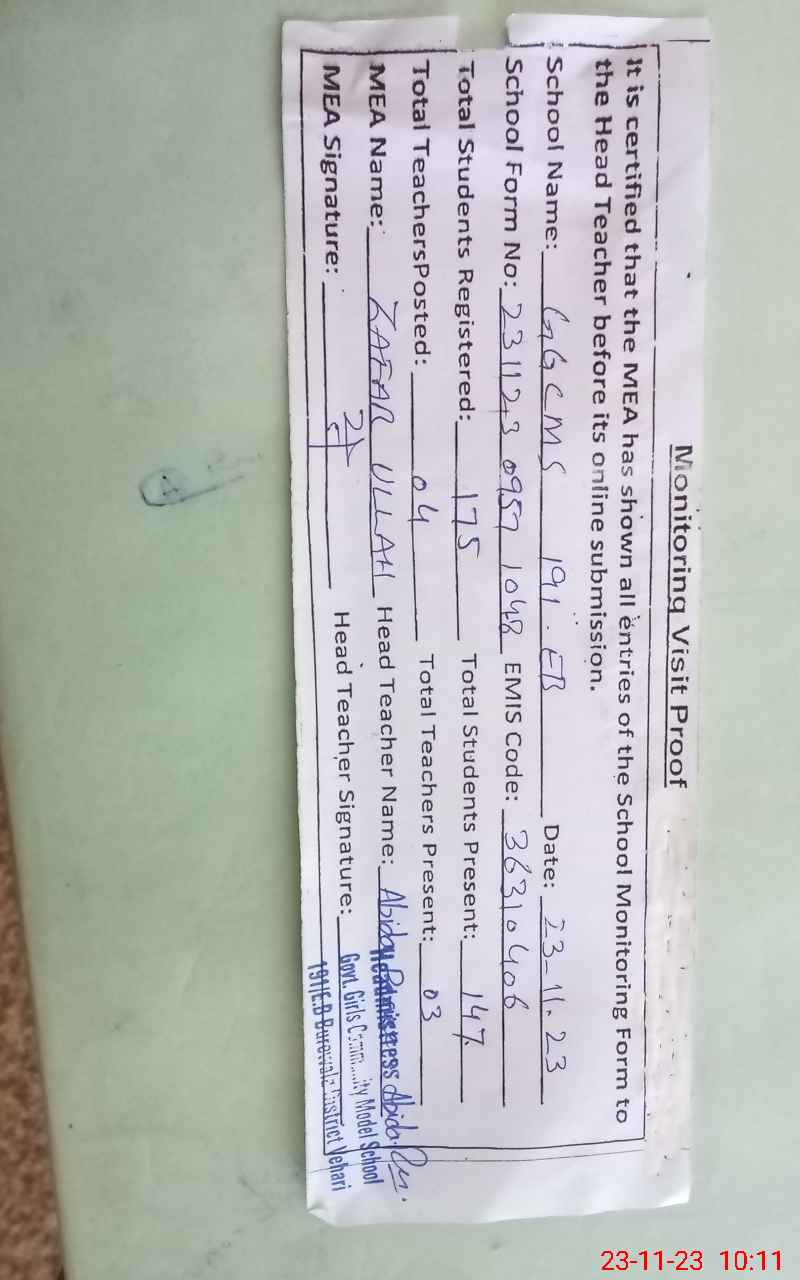 Monitoring Visit Proof
It is certified that the MEA has shown all entries of the School Monitoring Form to
the Head Teacher before its online submission.
School Name: GGCMS 191.EB Date: 23-11.23
School Form No: 231123 0957 1048 EMIS Code: 36310406
Total Students Registered: 175 Total Students Present: 147
Total TeachersPosted: 04 Total Teachers Present: 03
MEA Name: ZAFAR ULLAH Head Teacher Name: Abida
MEA Signature: Head Teacher Signature:
Headmistress Abida
Govt. Girls Community Model School
191/E.B Burewala District Vehari
23-11-23 10:11